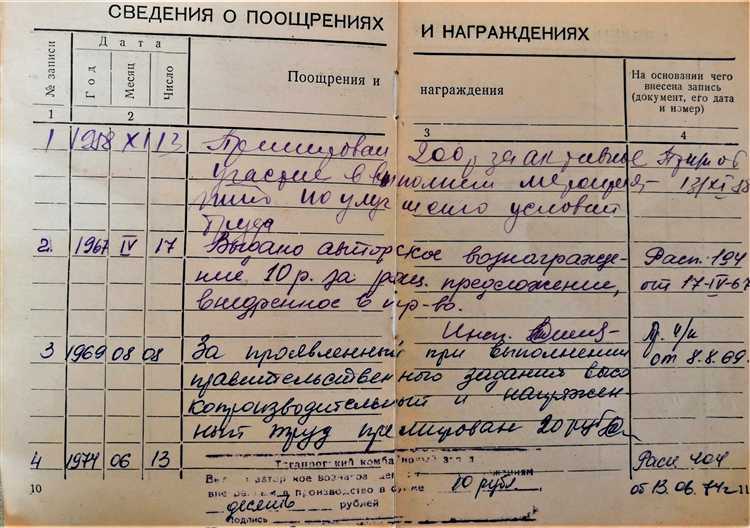 СВЕДЕНИЯ О ПООЩРЕНИЯХ И НАГРАЖДЕНИЯХ
№ записи Дата Год Месяц Число Поощрения и награждения На основании чего внесена запись (документ, его дата и номер)
1 2 3 4
1 1958 XI 13 Премирован 200 р. за активное
участие в выполнен. мероприят- 13/XI 58
по улучшению условий
труда
2. 1967 IV 17 Выдано авторское вознагражде- Расп. 194
ние 10 р. за рац. предложение, от 17-IV-67
внедренное в пр-во.
Инсп.
3 1969 08 08 За проявленный при выполнении от 8.8.69.
правительственного задания высо
копроизводительный и напряжен
ный труд премирован 20 руб
4 1974 06 13 Таганрогский комбайновый завод Расп 404
10 внедрен в производство в сумме 10 рубл. от 13.06.74г
десять рублей
подпись